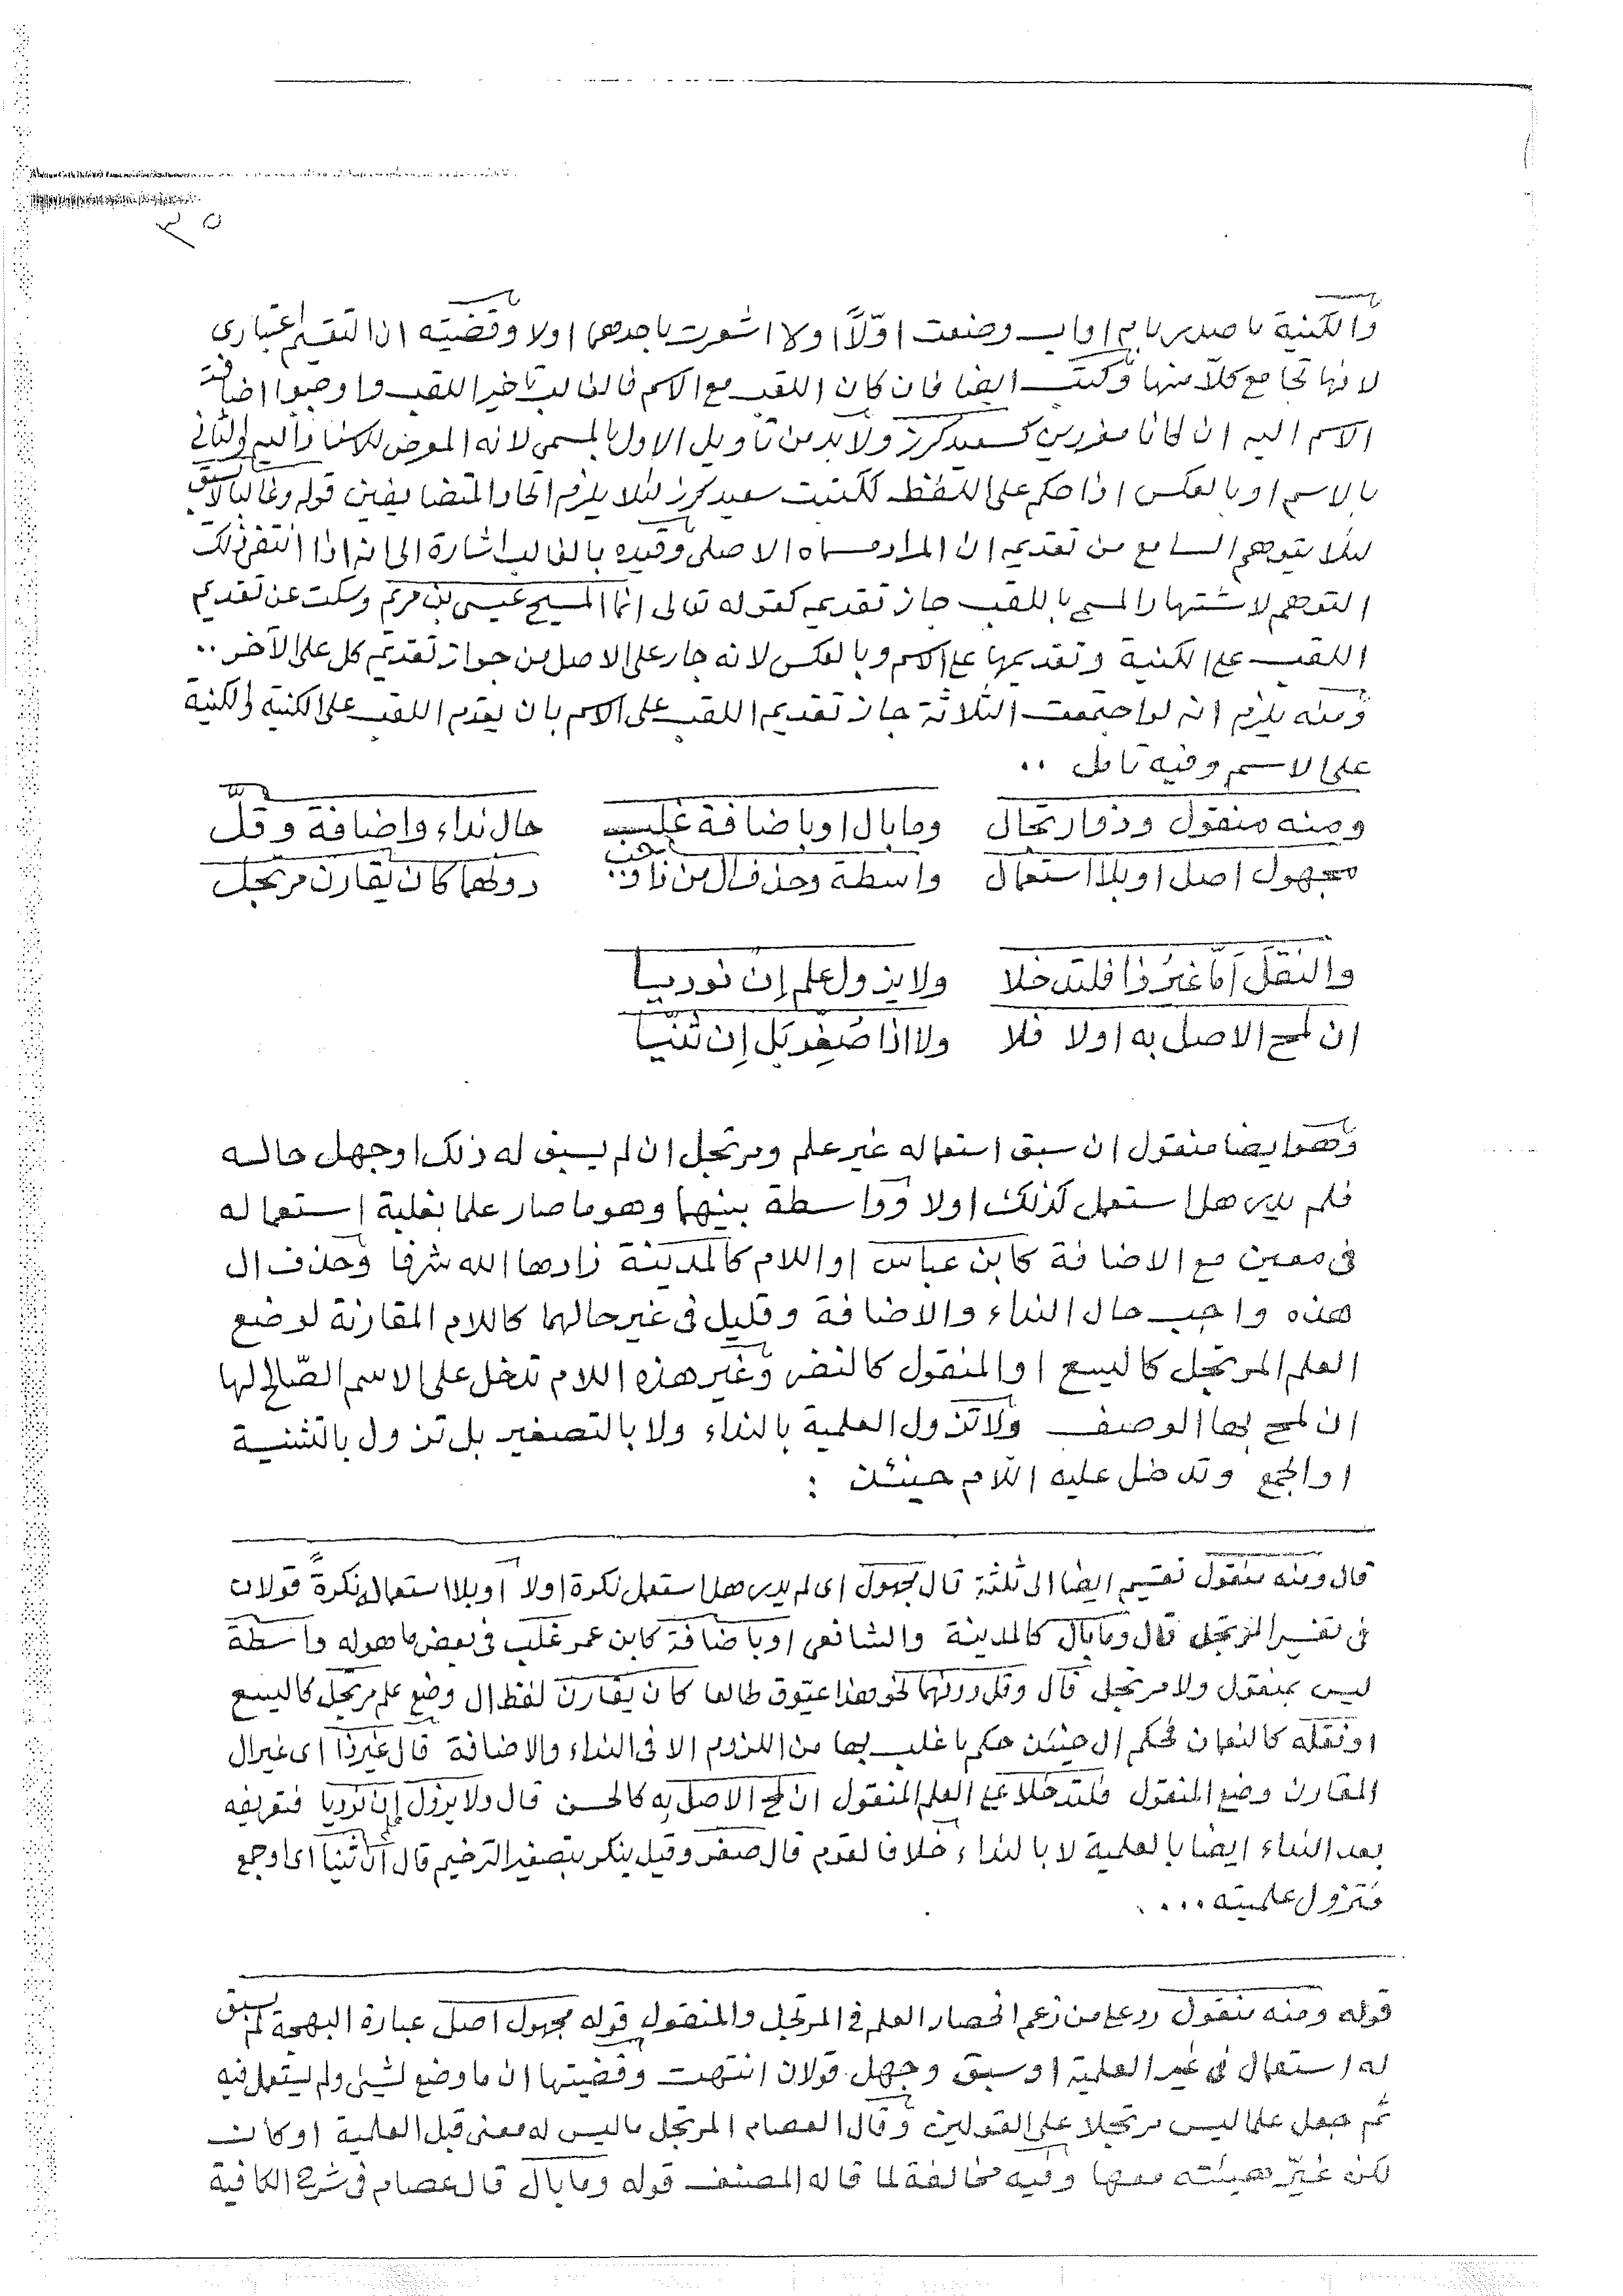 ٣٥
والكنية ما صدر بام او اب وضعت اوّلاً اولا اشعرت باحدهما اولا وقضيته ان التقسيم اعتبارى
لانها تجامع كلاّ منهما وكتب ايضا فان كان اللقب مع الاسم فالغالب تاخير اللقب واوجبوا اضافة
الاسم اليه ان كانا مفردين كسعيد كرز ولا بد من تأويل الاول بالمسمى لانه المعرض للاسناد اليه والثانى
بالاسم او بالعكس اذا حكم على اللفظ ككتبت سعيد كرز لئلا يلزم اتحاد المتضايفين قوله وغالبا لا يسبق
لئلا يتوهم السامع من تقديمه ان المراد مسماه الاصلى وقيده بالغالب اشارة الى انه اذا انتفى ذلك
التوهم لاشتهار المسمى باللقب جاز تقديمه كقوله تعالى انما المسيح عيسى بن مريم وسكت عن تقديم
اللقب على الكنية وتقديمها على الاسم وبالعكس لانه جار على الاصل من جواز تقديم كل على الآخر ..
ومنه يلزم انه لو اجتمعت الثلاثة جاز تقديم اللقب على الاسم بان يقدم اللقب على الكنية والكنية
على الاسم وفيه تامل ..
ومنه منقول وذو ارتجال وما بال او باضافة غلب حال نداء واضافة وقل
مجهول اصل او بلا استعمال واسطة وحذف ال من ذا وجب دونهما كان يقارن مرتجل
والنقل أمّا غيرُ ذا فلتدخلا ولا يزول علم إن نوديا
ان لمح الاصل به اولا فلا ولا اذا صُغِّر بَل إن ثُنّيا
وهو ايضا منقول ان سبق استعماله غير علم ومرتجل ان لم يسبق له ذلك او جهل حاله
فلم يدر هل استعمل كذلك اولا وواسطة بينهما وهو ما صار علما بغلبة استعماله
فى معين مع الاضافة كابن عباس او اللام كالمدينة زادها الله شرفا وحذف ال
هذه واجب حال النداء والاضافة وقليل فى غير حالهما كاللام المقارنة لوضع
العلم المرتجل كاليسع او المنقول كالنضر وغير هذه اللام تدخل على الاسم الصّالح لها
ان لمح بها الوصف ولا تزول العلمية بالنداء ولا بالتصغير بل تزول بالتثنية
او الجمع وتدخل عليه اللام حينئذ :
قال ومنه منقول تقسيم ايضا الى ثلثة قال مجهول اى لم يدر هل استعمل نكرة اولا او بلا استعماله نكرةً قولان
فى تفسير المرتجل قال وما بال كالمدينة والشافعى او باضافة كابن عمر غلب فى بعض ما هو له واسطة
ليس بمنقول ولا مرتجل قال وقل دونهما نحو هذا عيوق طالعا كان يقارن لفظ ال وضع علم مرتجل كاليسع
او نقله كالنعمان فحكم ال حينئذ حكم ما غلب بها من اللزوم الا فى النداء والاضافة قال غير ذا اى غير ال
المقارن وضع المنقول فلتدخلا على العلم المنقول ان لمح الاصل به كالحسن قال ولا يزول إن نوديا فتعريفه
بعد النداء ايضا بالعلمية لا بالنداء خلافا لقوم قال صغر وقيل ينكر بتصغير الترخيم قال ان ثنيا اى او جمع
فتزول علميته ....
قوله ومنه منقول رد على من زعم انحصار العلم فى المرتجل والمنقول قوله مجهول اصل عبارة البهجة لم يسبق
له استعمال فى غير العلمية او سبق وجهل قولان انتهت وقضيتها ان ما وضع لشىء ولم يستعمل فيه
ثم جعل علما ليس مرتجلا على القولين وقال العصام المرتجل ما ليس له معنى قبل العلمية او كان
لكن غيّر هيئته معها وفيه مخالفة لما قاله المصنف قوله وما بال قال عصام فى شرح الكافية